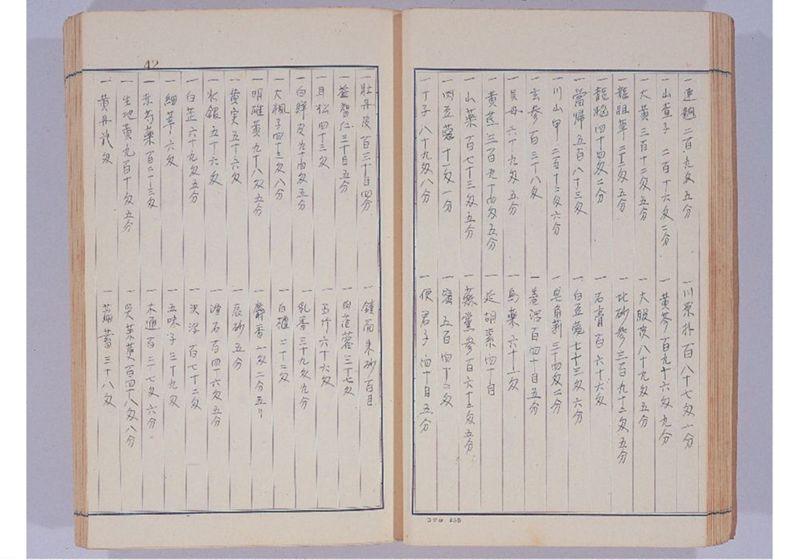 一 連翹 二百九匁五分 一 川厚朴 百八十七匁一分
一 山査子 二百十六匁二分 一 黄芩 百九十六匁九分
一 大黄 三百十二匁五分 一 大腹皮 八十九匁五分
一 龍胆草 二十二匁五分 一 北砂参 三百九十二匁五分
一 龍脳 四十四匁二分 一 石膏 百六十六匁
一 當帰 五百八十三匁 一 白豆蔲 七十三匁六分
一 川山甲 二百十二匁六分 一 皂角莿 三十四匁二分
一 玄参 百三十八匁 一 巻活 百四十目五分
一 貝母 六十九匁五分 一 烏薬 六十二匁
一 黄芪 三百九十四匁五分 一 延胡索 四十目
一 山薬 百七十三匁五分 一 黨参 百六十五匁五分
一 肉豆蔲 十一匁一分 一 蜜 五百四十二匁
一 丁子 八十九匁八分 一 使君子 四十目五分
42
一 牡丹皮 百三十目四分 一 朱砂 百目
一 益智仁 三十目五分 一 肉蓯蓉 三十七匁
一 甘松 四十三匁 一 玉竹 六十六匁
一 白鮮皮 九十四匁五分 一 乳香 三十九匁九分
一 大楓子 四十三匁八分 一 白檀 二十二匁
一 明雄黄 九十八匁五分 一 麝香 一匁二分五り
一 黄実 五十六匁 一 辰砂 五分
一 水銀 五十六匁 一 滑石 百四十六匁五分
一 白芷 六十九匁五分 一 沢瀉 百七十二匁
一 細辛 六匁 一 五味子 三十九匁
一 赤芍薬 百二十三匁 一 木通 百三十七匁六分
一 生地黄 九百十匁五分 一 呉茱萸 百四十八匁八分
一 黄丹 弐匁 一 萹蓄 三十八匁